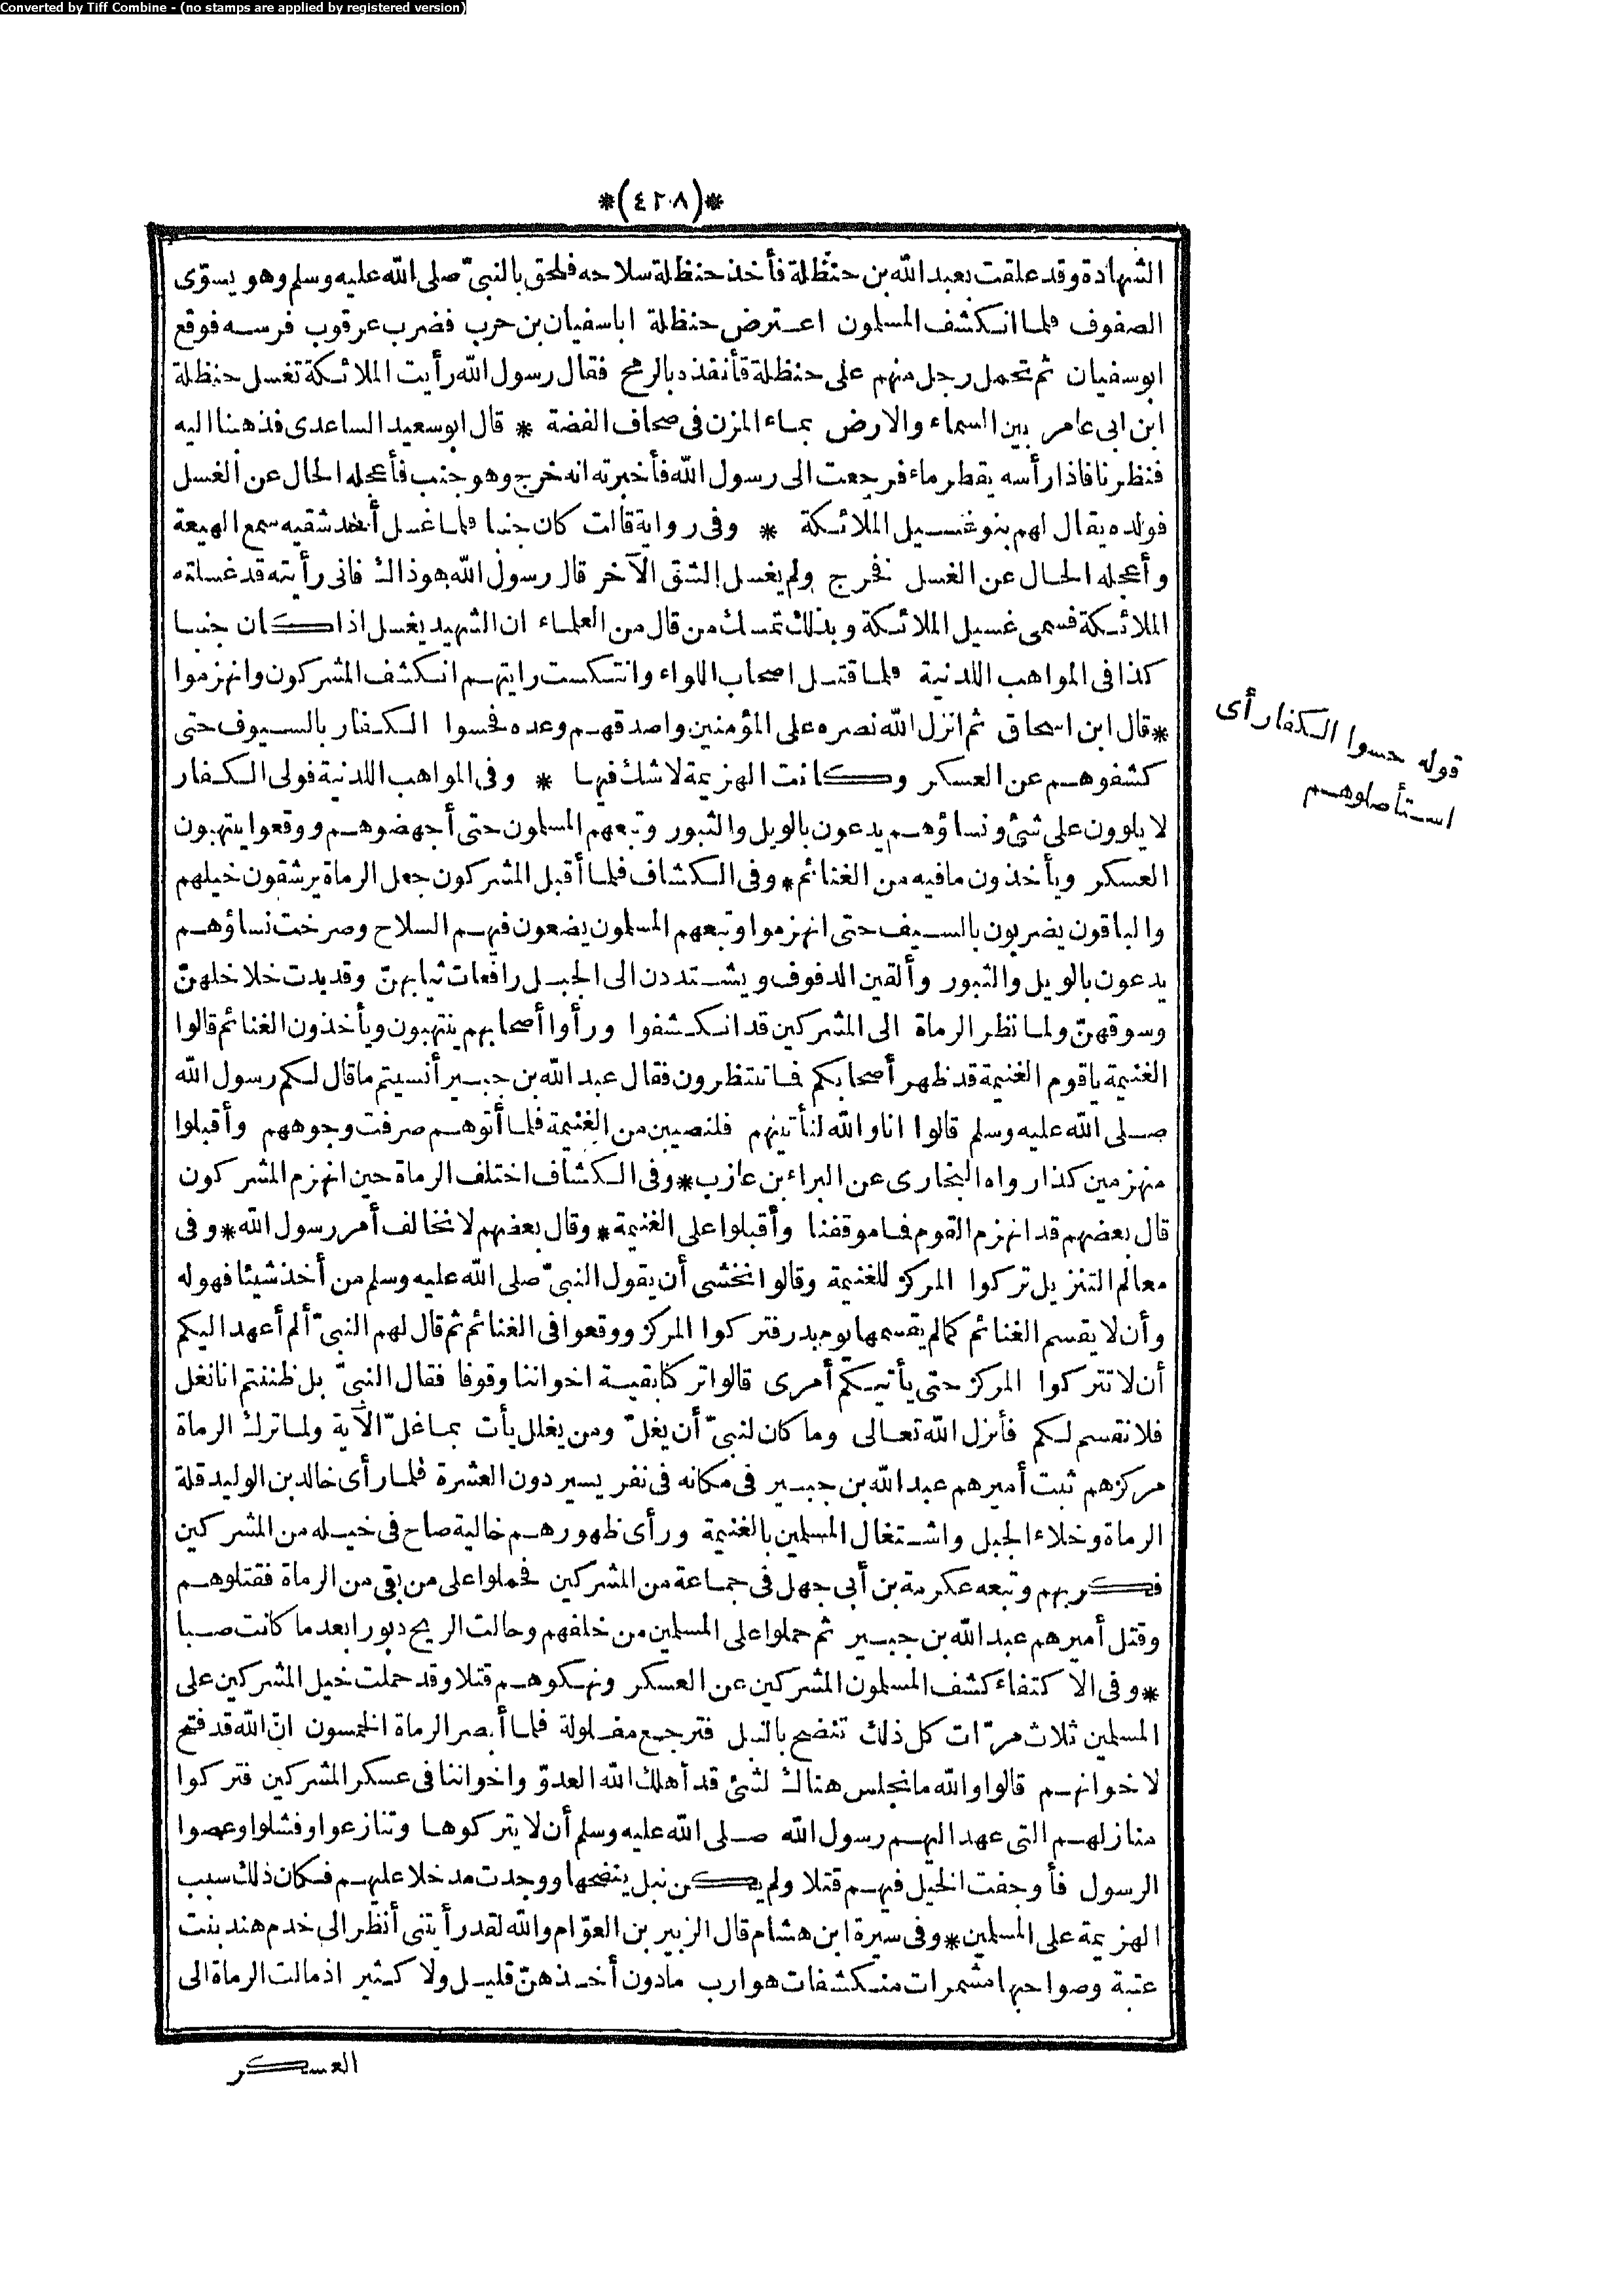 Converted by Tiff Combine - (no stamps are applied by registered version)
*(٤٢٨)*
الشهادة وقد علقت بعبد الله بن حنظلة فأخذ حنظلة سلاحه فلحق بالنبيّ صلى الله عليه وسلم وهو يسوّى
الصفوف فلما انكشف المسلمون اعترض حنظلة اباسفيان بن حرب فضرب عرقوب فرسه فوقع
ابوسفيان ثم تحمل رجل منهم على حنظلة فأنفذه بالرمح فقال رسول الله رأيت الملائكة تغسل حنظلة
ابن ابى عامر بين السماء والارض بماء المزن فى صحاف الفضة * قال ابوسعيد الساعدى فذهبنا اليه
فنظرنا فاذا رأسه يقطر ماء فرجعت الى رسول الله فأخبرته انه خرج وهو جنب فأعجله الحال عن الغسل
فولده يقال لهم بنو غسيل الملائكة * وفى رواية قالت كان جنبا فلما غسل أحد شقيه سمع الهيعة
وأعجله الحال عن الغسل فخرج ولم يغسل الشق الآخر قال رسول الله هو ذاك فانى رأيته قد غسلته
الملائكة فسمى غسيل الملائكة وبذلك تمسك من قال من العلماء ان الشهيد يغسل اذا كان جنبا
كذا فى المواهب اللدنية فلما قتل اصحاب اللواء وانتكست رايتهم انكشف المشركون وانهزموا
*قال ابن اسحاق ثم انزل الله نصره على المؤمنين واصدقهم وعده فحسوا الكفار بالسيوف حتى
كشفوهم عن العسكر وكانت الهزيمة لا شك فيها * وفى المواهب اللدنية فولى الكفار
لا يلوون على شئ ونساؤهم يدعون بالويل والثبور وتبعهم المسلمون حتى أجهضوهم ووقعوا ينتهبون
العسكر ويأخذون ما فيه من الغنائم * وفى الكشاف فلما أقبل المشركون جعل الرماة يرشقون خيلهم
والباقون يضربون بالسيف حتى انهزموا وتبعهم المسلمون يضعون فيهم السلاح وصرخت نساؤهم
يدعون بالويل والثبور وألقين الدفوف ويشتددن الى الجبل رافعات ثيابهنّ وقد بدت خلاخلهنّ
وسوقهنّ ولما نظر الرماة الى المشركين قد انكشفوا ورأوا أصحابهم ينتهبون ويأخذون الغنائم قالوا
الغنيمة يا قوم الغنيمة قد ظهر أصحابكم فما تنتظرون فقال عبد الله بن جبير أنسيتم ما قال لكم رسول الله
صلى الله عليه وسلم قالوا انا والله لنأتينهم فلنصيبن من الغنيمة فلما أتوهم صرفت وجوههم وأقبلوا
منهزمين كذا رواه البخارى عن البراء بن عازب * وفى الكشاف اختلف الرماة حين انهزم المشركون
قال بعضهم قد انهزم القوم فما موقفنا وأقبلوا على الغنيمة * وقال بعضهم لا نخالف أمر رسول الله * وفى
معالم التنزيل تركوا المركز للغنيمة وقالوا نخشى أن يقول النبيّ صلى الله عليه وسلم من أخذ شيئا فهو له
وأن لا يقسم الغنائم كما لم يقسمها يوم بدر فتركوا المركز ووقعوا فى الغنائم ثم قال لهم النبيّ ألم أعهد اليكم
أن لا تتركوا المركز حتى يأتيكم أمرى قالوا تركنا بقية اخواننا وقوفا فقال النبيّ بل ظننتم انا نغل
فلا نقسم لكم فأنزل الله تعالى وما كان لنبيّ أن يغلّ ومن يغلل يأت بما غلّ الآية ولما ترك الرماة
مركزهم ثبت أميرهم عبد الله بن جبير فى مكانه فى نفر يسير دون العشرة فلما رأى خالد بن الوليد قلة
الرماة وخلاء الجبل واشتغال المسلمين بالغنيمة ورأى ظهورهم خالية صاح فى خيله من المشركين
فكر بهم وتبعه عكرمة بن أبى جهل فى جماعة من المشركين فحملوا على من بقى من الرماة فقتلوهم
وقتل أميرهم عبد الله بن جبير ثم حملوا على المسلمين من خلفهم وحالت الريح دبورا بعد ما كانت صبا
*وفى الاكتفاء كشف المسلمون المشركين عن العسكر ونهكوهم قتلا وقد حملت خيل المشركين على
المسلمين ثلاث مرّات كل ذلك تنضح بالنبل فترجع مفلولة فلما أبصر الرماة الخمسون انّ الله قد فتح
لاخوانهم قالوا والله ما نجلس هناك لشئ قد أهلك الله العدوّ واخواننا فى عسكر المشركين فتركوا
منازلهم التى عهد اليهم رسول الله صلى الله عليه وسلم أن لا يتركوها وتنازعوا وفشلوا وعصوا
الرسول فأوجفت الخيل فيهم قتلا ولم يكن نبل ينضحها ووجدت مدخلا عليهم فكان ذلك سبب
الهزيمة على المسلمين * وفى سيرة ابن هشام قال الزبير بن العوّام والله لقد رأيتنى أنظر الى خدم هند بنت
عتبة وصواحبها مشمرات منكشفات هوارب ما دون أخذهنّ قليل ولا كثير اذ مالت الرماة الى
العسكر
قوله حسوا الكفار أى
استأصلوهم